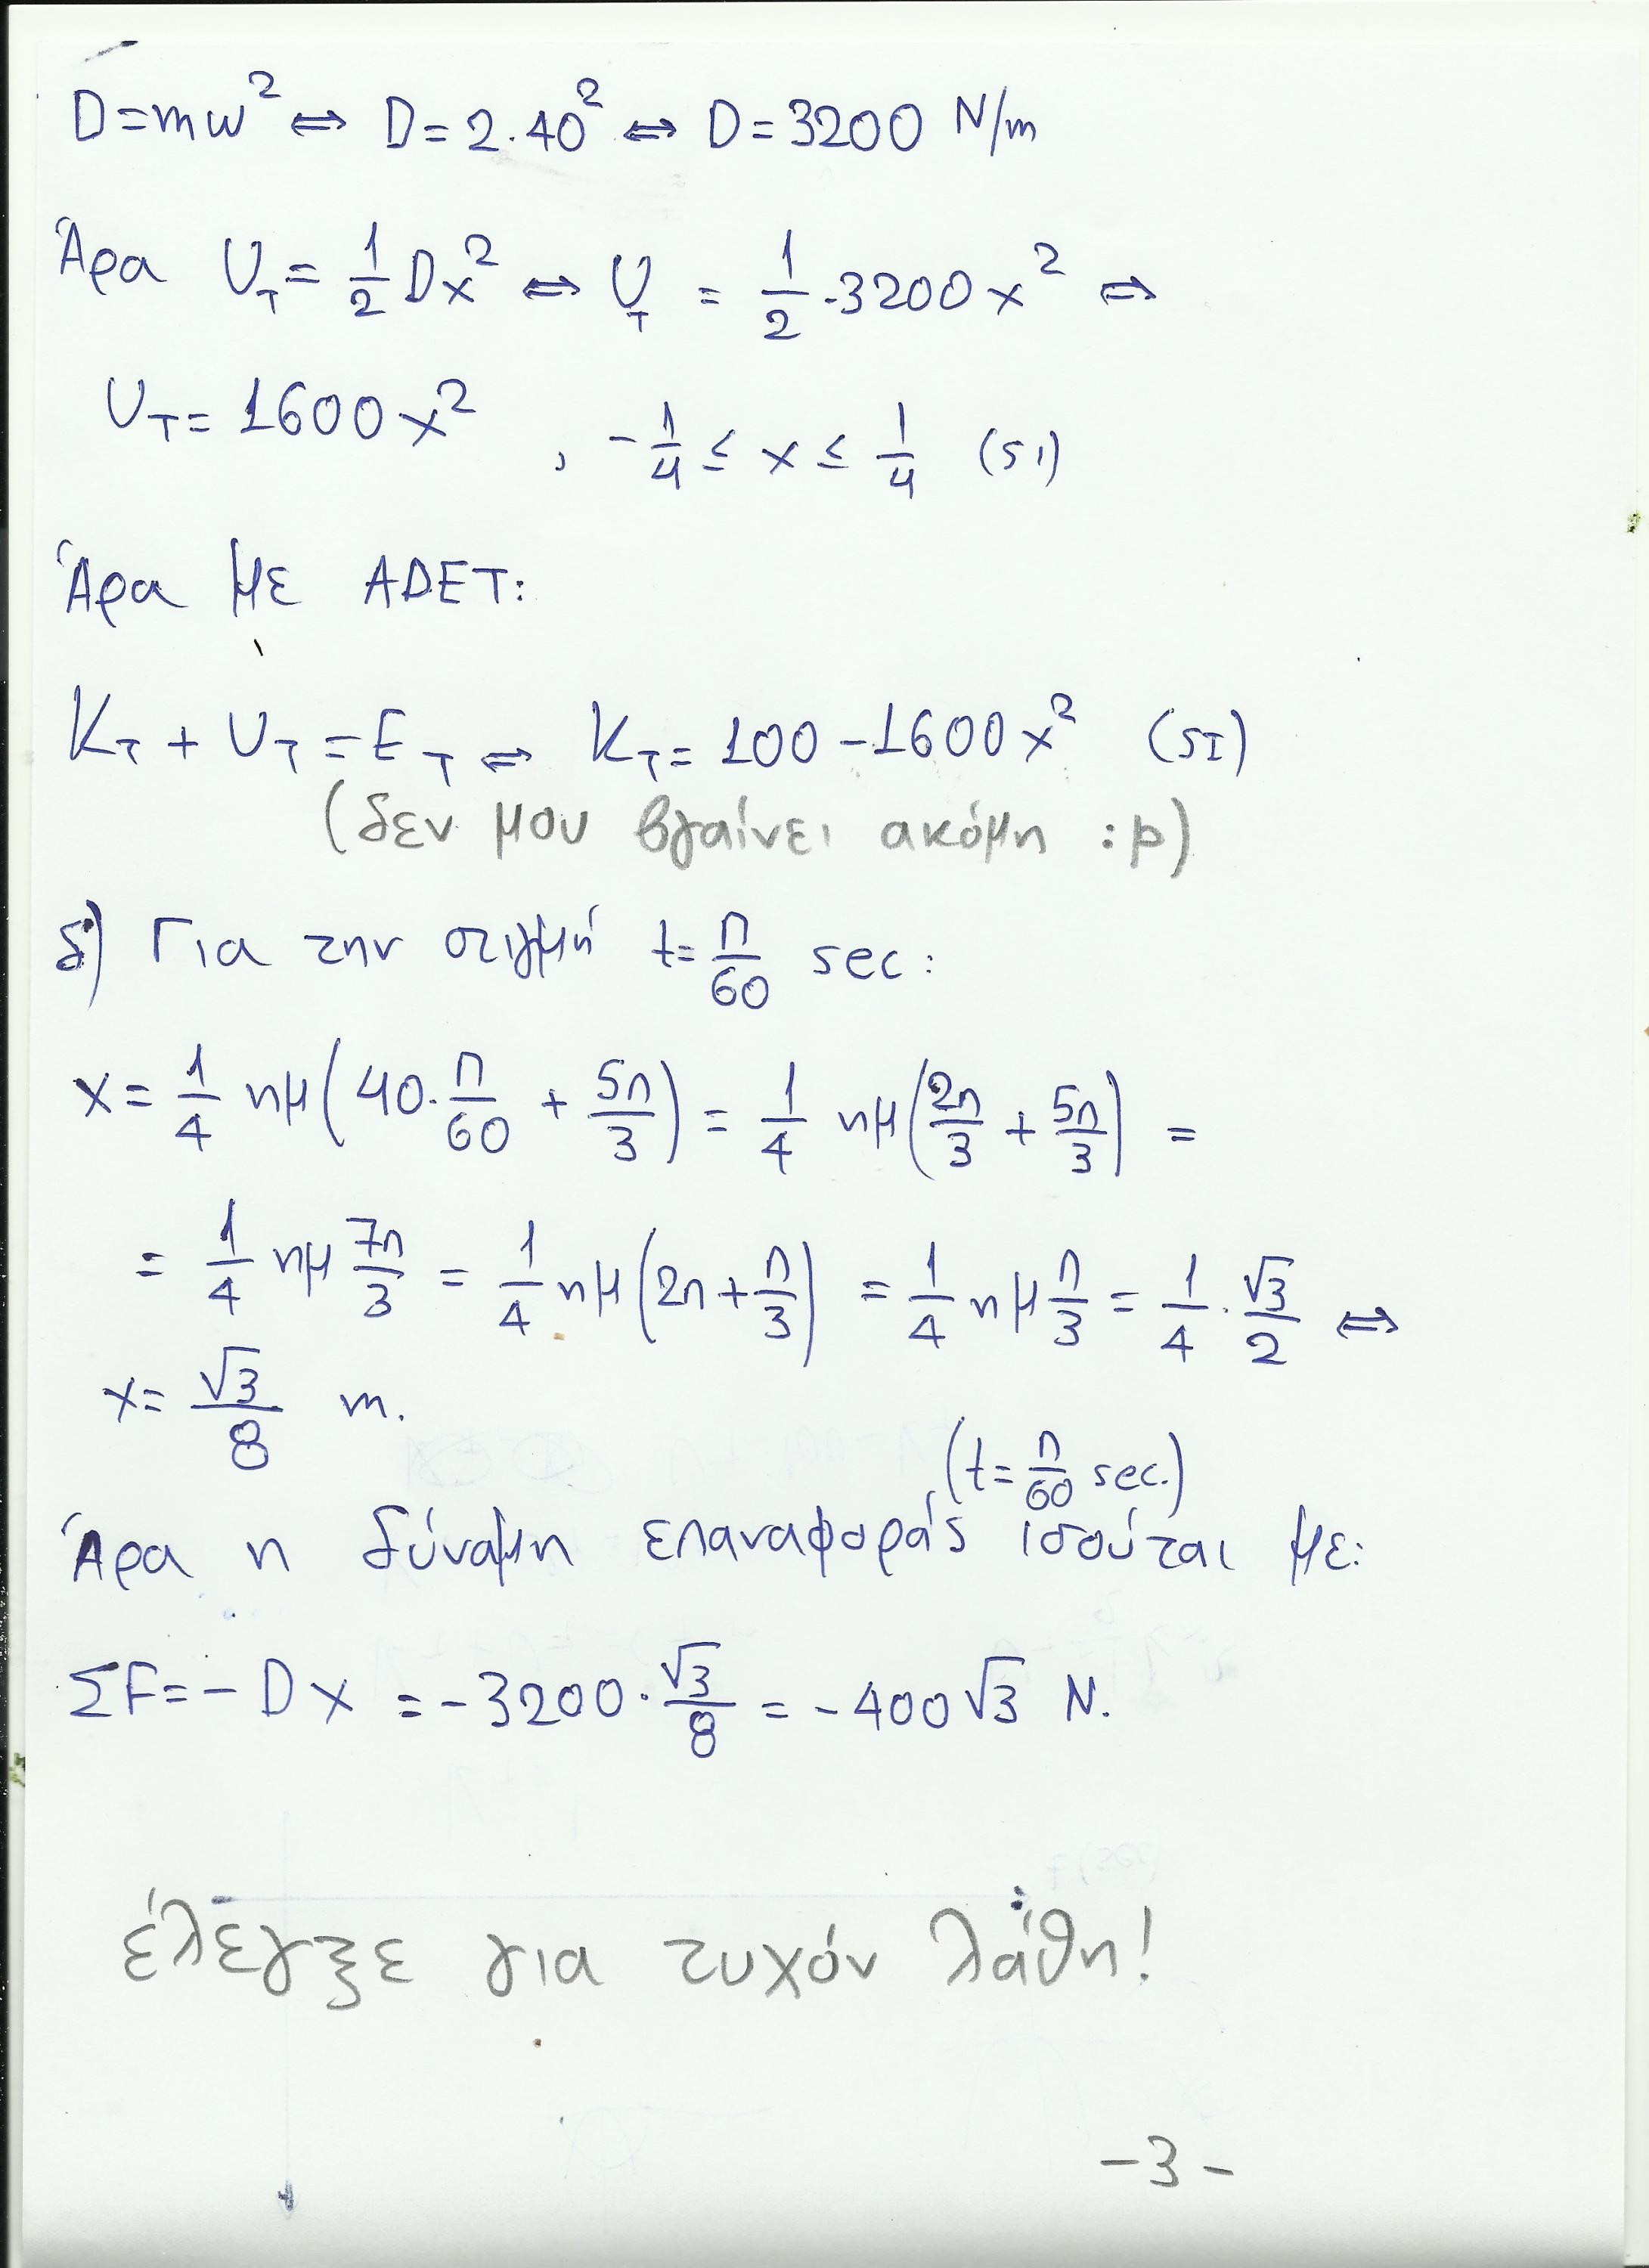 D=mω² ⇔ D=2·40² ⇔ D=3200 N/m
Άρα U_T = 1/2 Dx² ⇔ U_T = 1/2 ·3200x² ⇔
U_T = 1600x² , -1/4 ≤ x ≤ 1/4 (SI)
Άρα με ΑΔΕΤ:
K_T + U_T = E_T ⇔ K_T = 100 - 1600x² (SI)
(δεν μου βγαίνει ακόμη :p)
δ) Για την στιγμή t= π/60 sec:
x = 1/4 ημ(40· π/60 + 5π/3) = 1/4 ημ(2π/3 + 5π/3) =
= 1/4 ημ 7π/3 = 1/4 ημ(2π + π/3) = 1/4 ημ π/3 = 1/4 · √3/2 ⇔
x = √3/8 m.
(t= π/60 sec.)
Άρα η δύναμη επαναφοράς ισούται με:
ΣF = -Dx = -3200· √3/8 = -400√3 N.
έλεγξε για τυχόν λάθη!
-3-